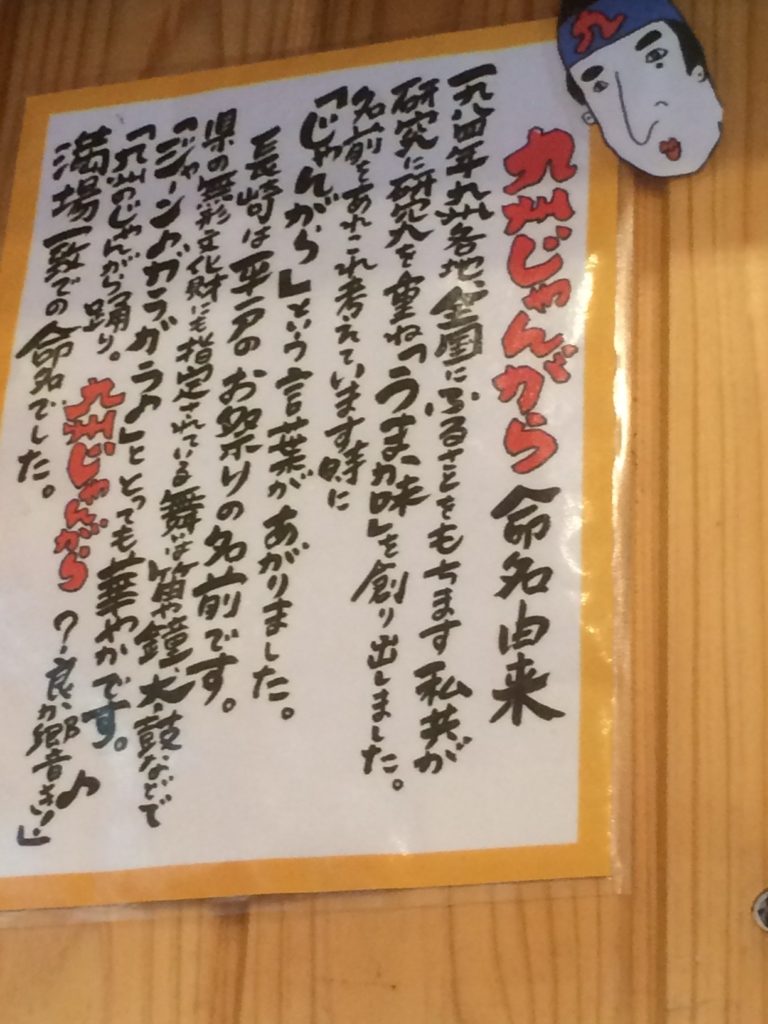 九
九州じゃんがら 命名由来
一九八四年九州各地、全国にふるさとをもちます私共が
研究に研究を重ね「うまか味」を創り出しました。
名前をあれこれ考えています時に
「じゃんがら」という言葉があがりました。
長崎は平戸のお祭りの名前です。
県の無形文化財にも指定されている舞は笛や鐘、太鼓などで
「ジャーン♪ガラガラ♪」ととっても華やかです。
「九州のじゃんがら踊り。九州じゃんがら?良か響きい♪」
満場一致での命名でした。